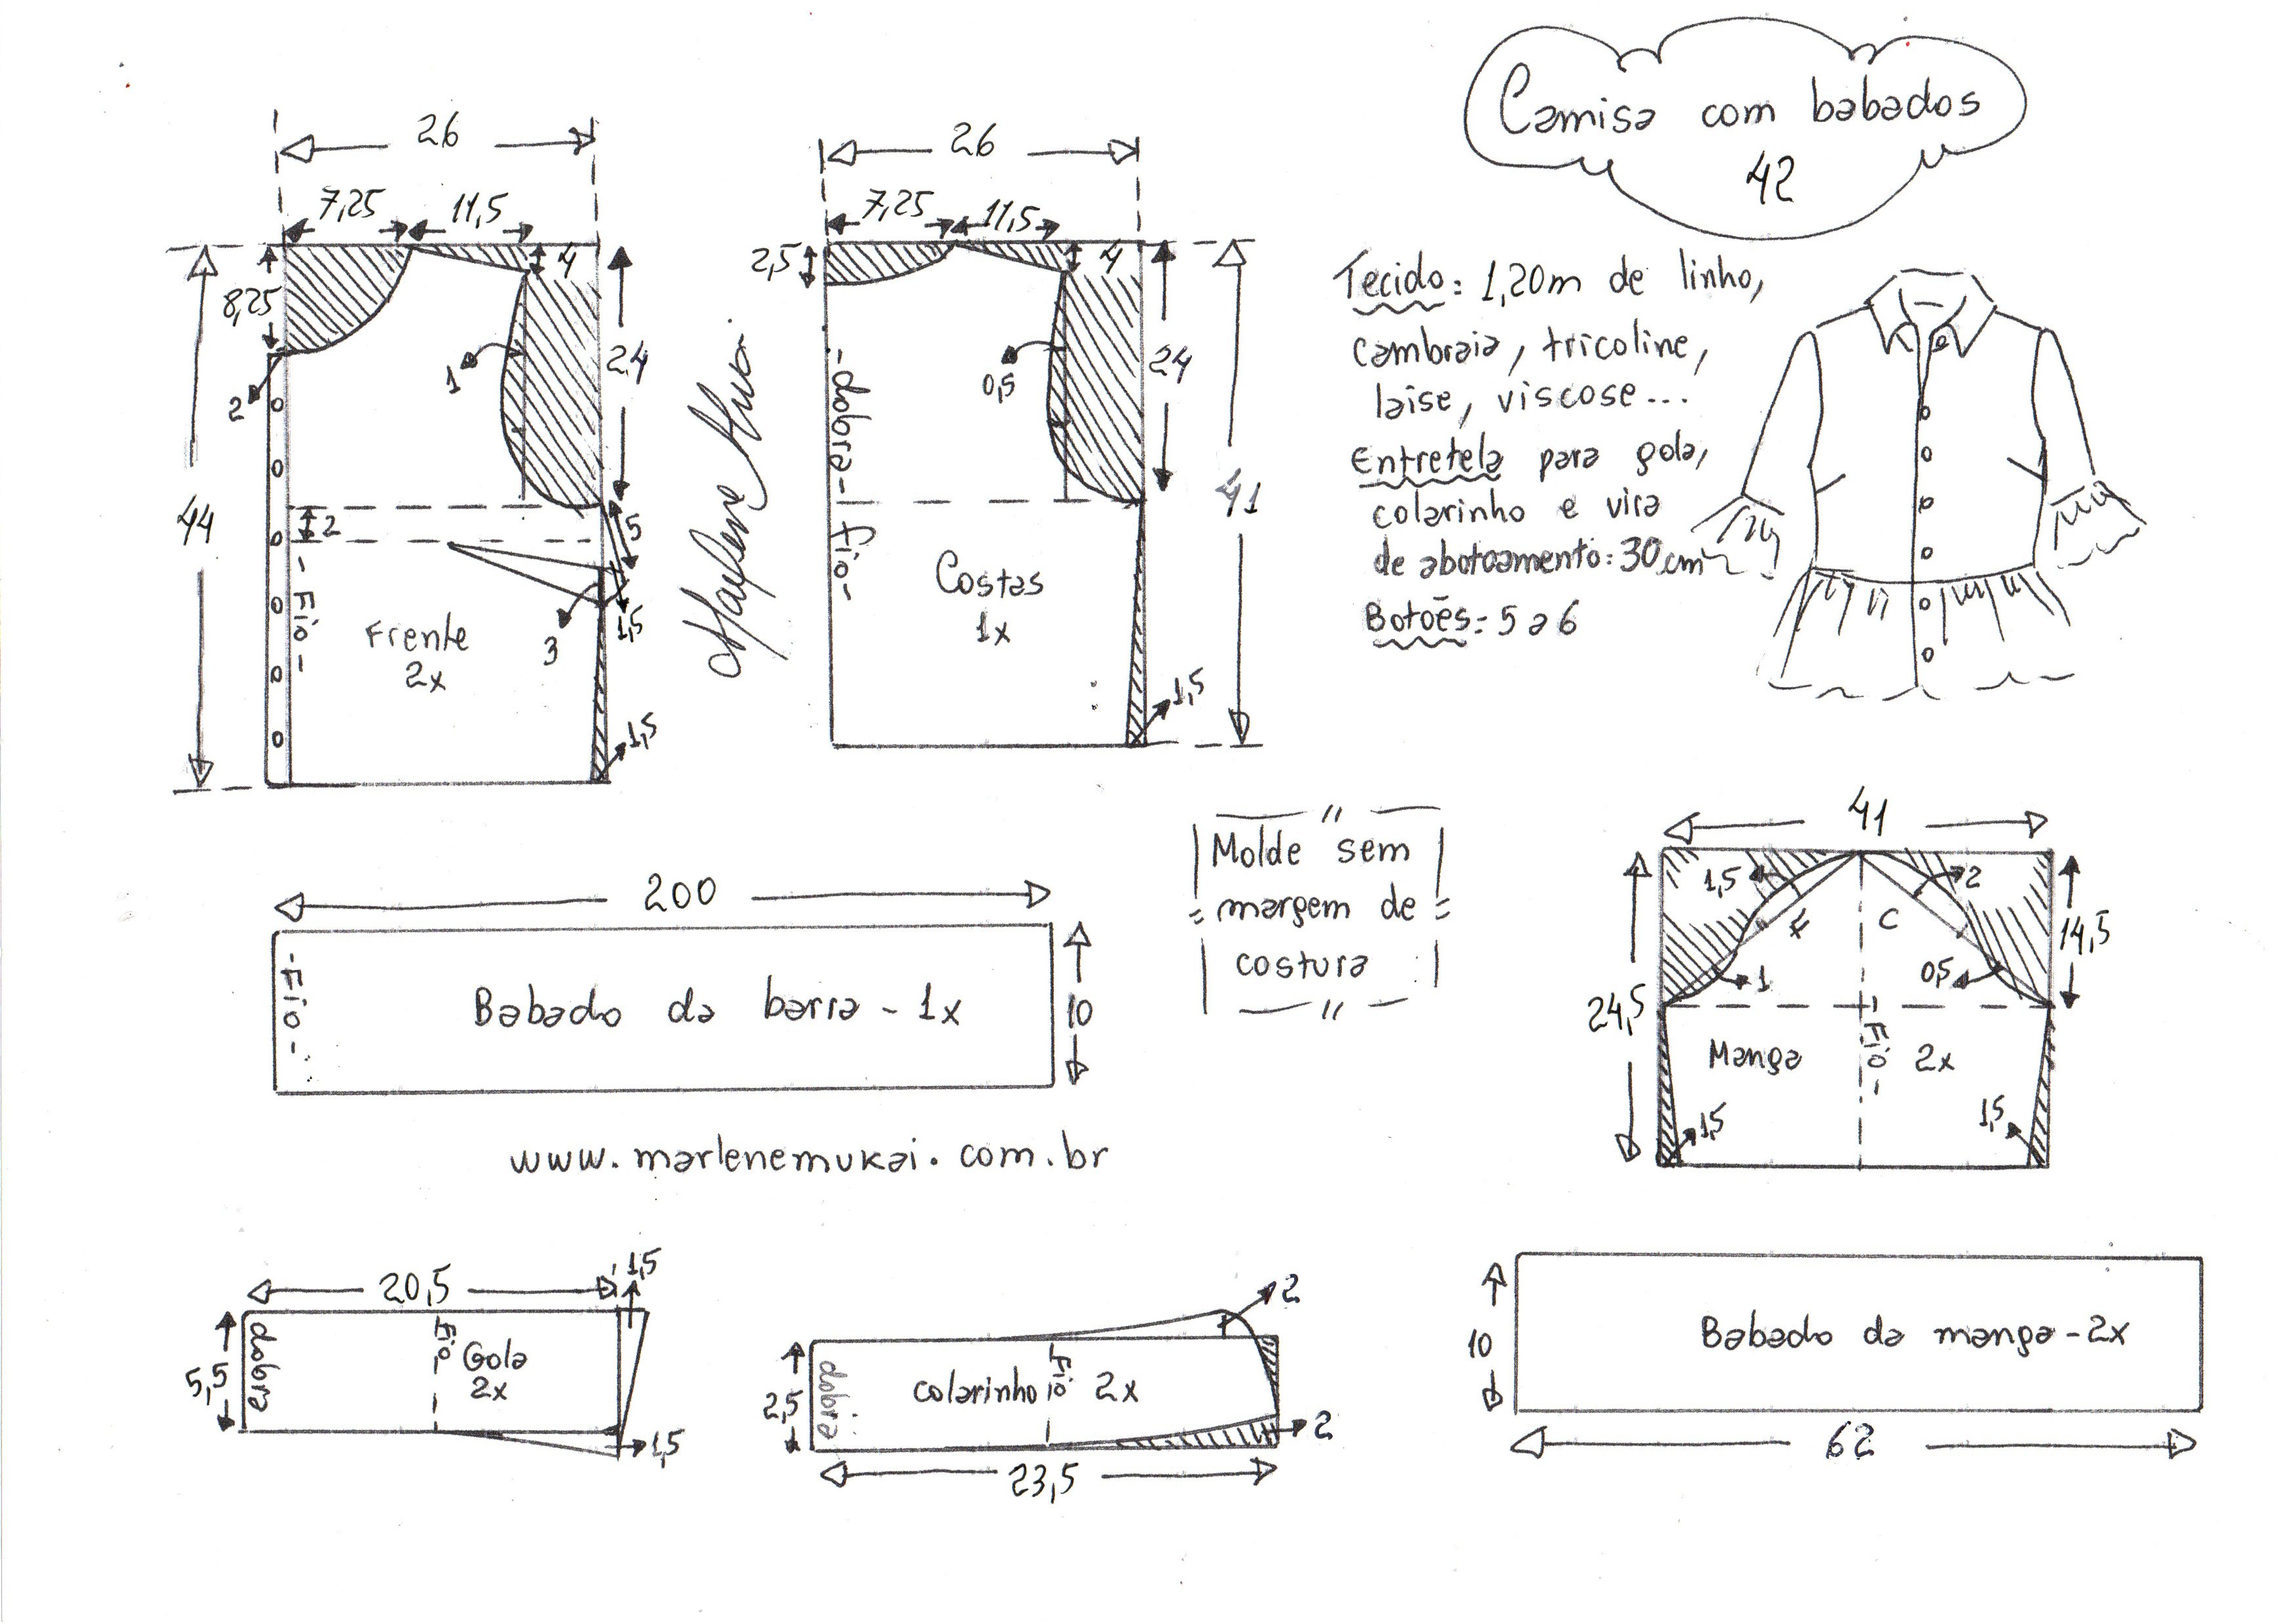 Camisa com babados
42
Tecido: 1,20m de linho,
cambraia, tricoline,
laise, viscose...
Entretela para gola,
colarinho e vira
de abotoamento: 30cm
Botões: 5 a 6
26
7,25
11,5
4
8,25
24
2
1
44
2
5
-Fio-
Frente
2x
3
1,5
1,5
26
7,25
11,5
2,5
4
24
0,5
41
-dobra-
Fio-
Costas
1x
1,5
Molde sem
margem de
costura
200
-Fio-
Babado da barra - 1x
10
www.marlenemukai.com.br
41
1,5
2
F
C
14,5
1
0,5
24,5
Manga
-Fio-
2x
1,5
1,5
20,5
1,5
5,5
dobra
Fio
Gola
2x
1,5
2
2,5
dobra
colarinho
Fio
2x
2
23,5
10
Babado da manga - 2x
62